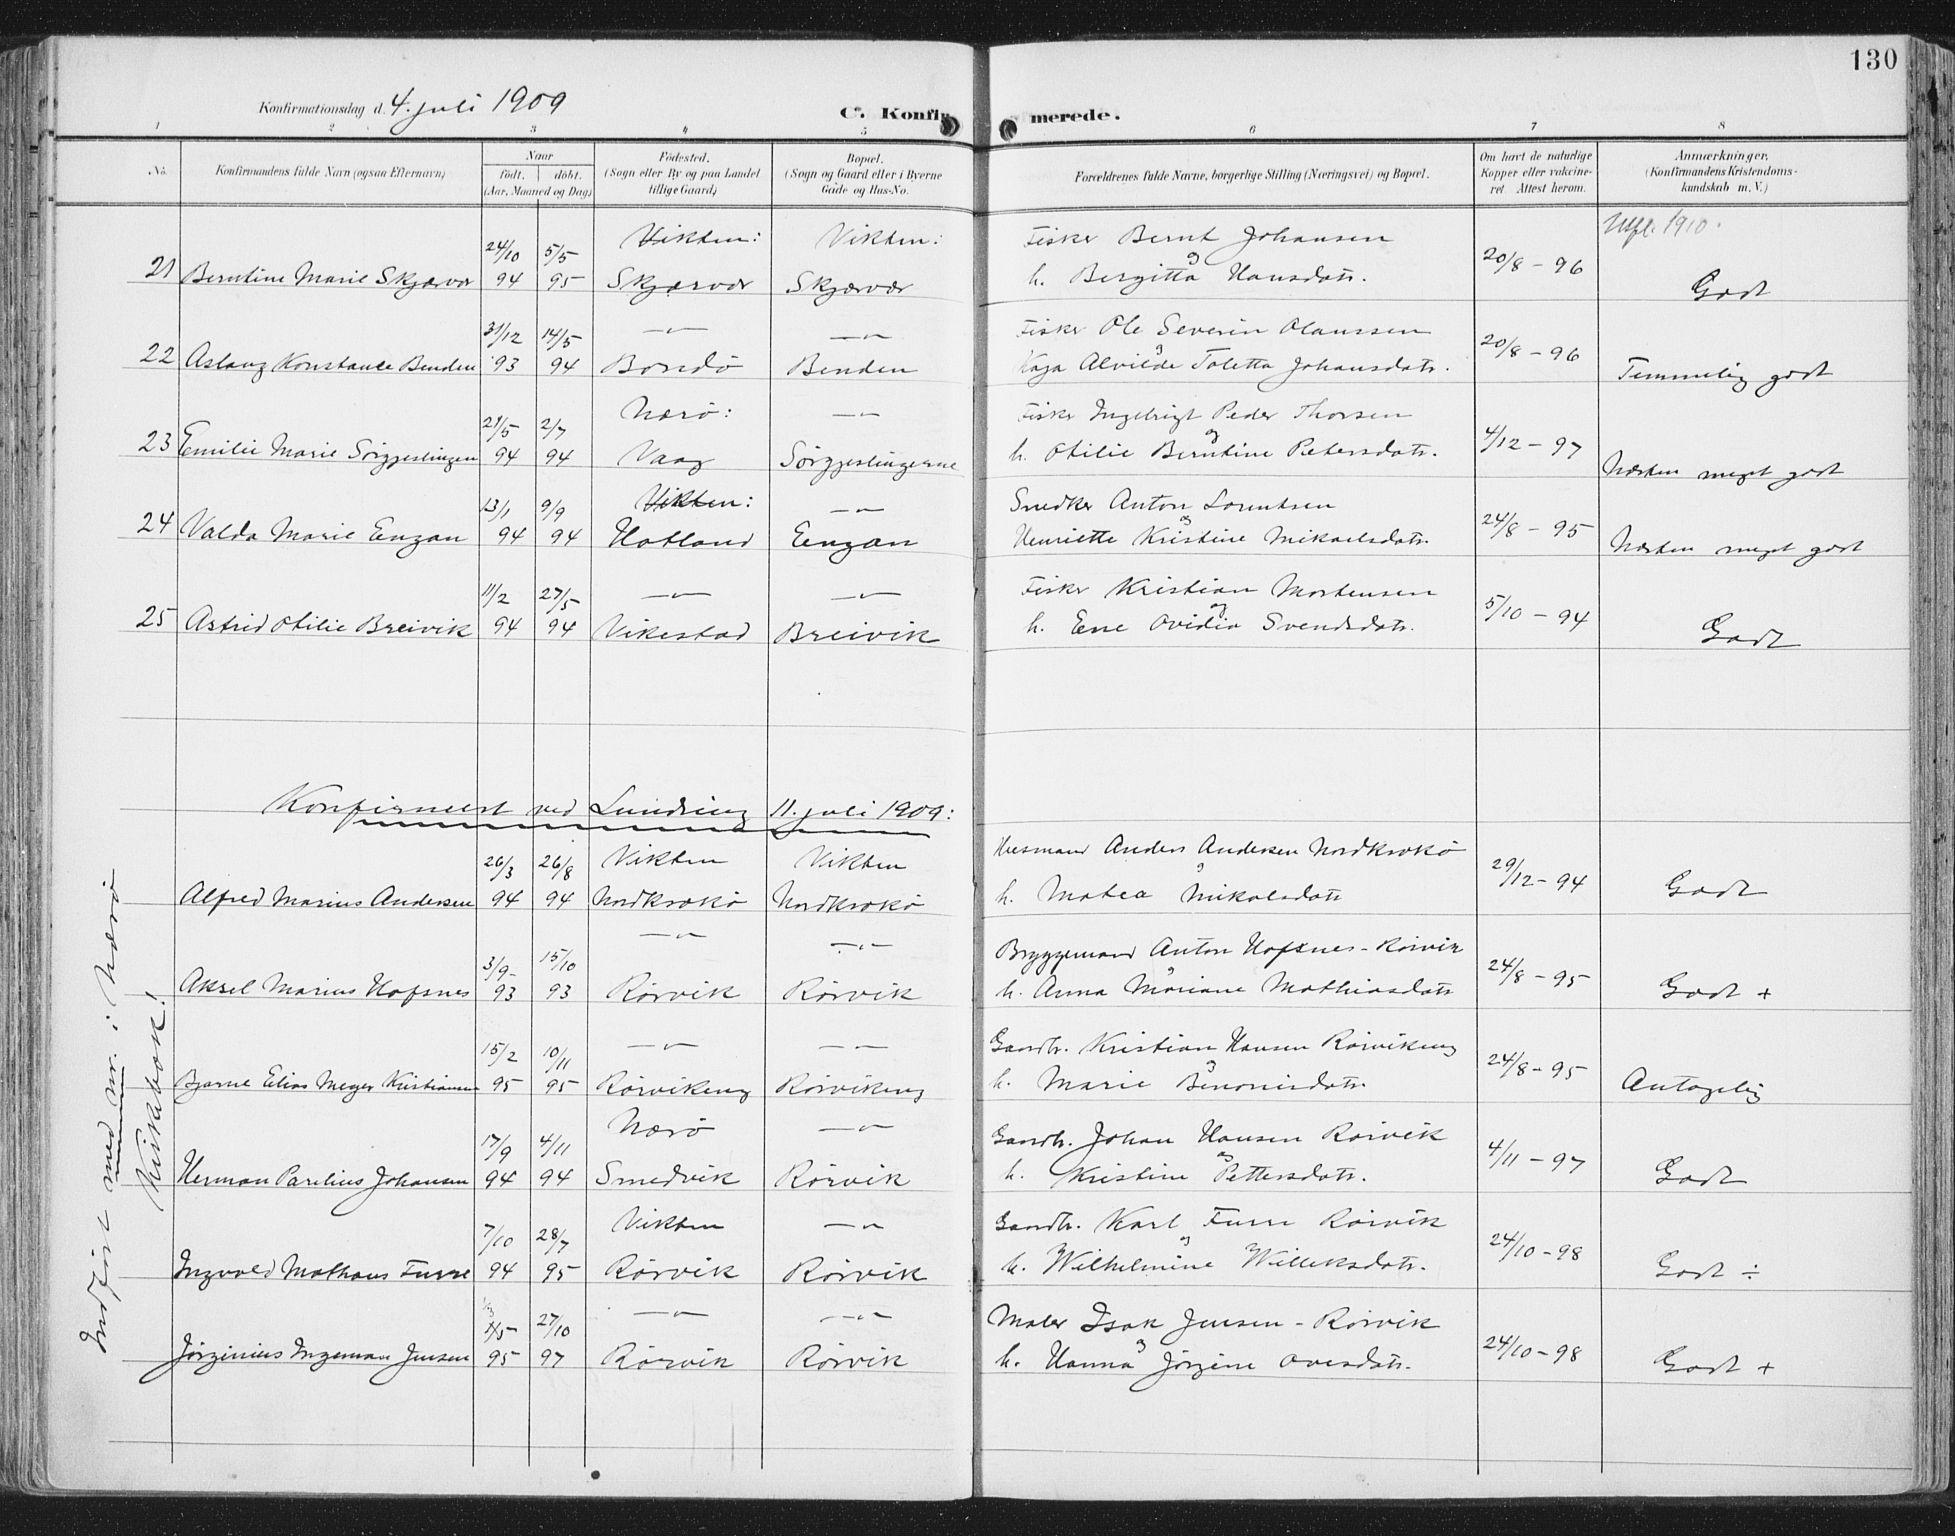 130
Konfirmationsdag d. 4. juli 1909
C. Konfir merede.
1 2 3 4 5 6 7 8
No. Konfirmandens fulde Navn (ogsaa Efternavn) Naar født. døbt. (Aar, Maaned og Dag) Fødested. (Sogn eller By og paa Landet tillige Gaard) Bopæl. (Sogn og Gaard eller i Byerne Gade og Hus-No. Forældrenes fulde Navne, borgerlige Stilling (Næringsvei) og Bopæl. Om havt de naturlige Kopper eller vakcineret. Attest herom. Anmærkninger. (Konfirmandens Kristendomskundskab m. V.)
24/10 5/5 Vikten: Vikten: Fisker Bernt Johansen 1910.
21 Berntine Marie Skjærvær 94 95 Skjærvær Skjærvær og h. Bergitta Hansdatr. 20/8 - 96 Godt
31/12 14/5 —"— —"— Fisker Ole Severin Olaussen
22 Aslaug Konstanse Benden 93 94 Bondø Benden og Kaja Alvilde Toletta Johansdatr. 20/8 - 96 Temmelig godt
21/5 2/7 Nærø: —"— Fisker Ingebrigt Peder Thorsen
23 Emilie Marie Sørgjeslingen 94 94 Vaag Sørgjeslingerne og h. Otilie Berntine Petersdatr. 4/12 - 97 Næsten meget godt
13/1 9/9 Vikten: —"— Snedker Anton Lorentsen
24 Valda Marie Engan 94 94 Hotland Engan og Henriette Kristine Mikaelsdatr. 24/8 - 95 Næsten meget godt
11/2 27/5 —"— —"— Fisker Kristian Mortensen
25 Astrid Otilie Breivik 94 94 Vikestad Breivik og h. Ene Ovidia Svendsdatr. 5/10 - 94 Godt
Konfirmeert ved Lundring 11. juli 1909:
26/3 26/8 Vikten Vikten Husmand Anders Andersen Nordkrokø
Alfred Marius Andersen 94 94 Nordkrokø Nordkrokø og h. Matea Mikalsdatr 29/12 - 94 Godt
3/9 15/10 —"— —"— Bryggemand Anton Hofsnes - Rørvik
Aksel Marius Hofsnes 93 93 Rørvik Rørvik og h. Anna Mariane Mathiasdatr 24/8 - 95 Godt +
15/2 10/11 —"— —"— Gaardbr. Kristian Hansen Rørvikeng
Bjarne Elias Meyer Kristiansen 95 95 Rørvikeng Rørvikeng og h. Marie Benonisdatr. 24/8 - 95 Antagelig
17/9 4/11 Nærø —"— Gaardbr. Johan Hansen Rørvik
Herman Parelius Johansen 94 94 Smedvik Rørvik og h. Kristine Pettersdatr. 4/11 - 97 Godt
7/10 28/7 Vikten —"— Gaardbr. Karl Furre Rørvik
Ingvald Mathæus Furre 94 95 Rørvik Rørvik og h. Wilhelmine Willeksdatr. 24/10 - 98 Godt ÷
27/10 —"— —"— Maler Isak Jensen - Rørvik
Jørginius Ingeman Jensen 95 97 Rørvik Rørvik og h. Hanna Jørgine Ovesdatr. 24/10 - 98 Godt +
Indført med nr. i Nærø
Kirkebok!